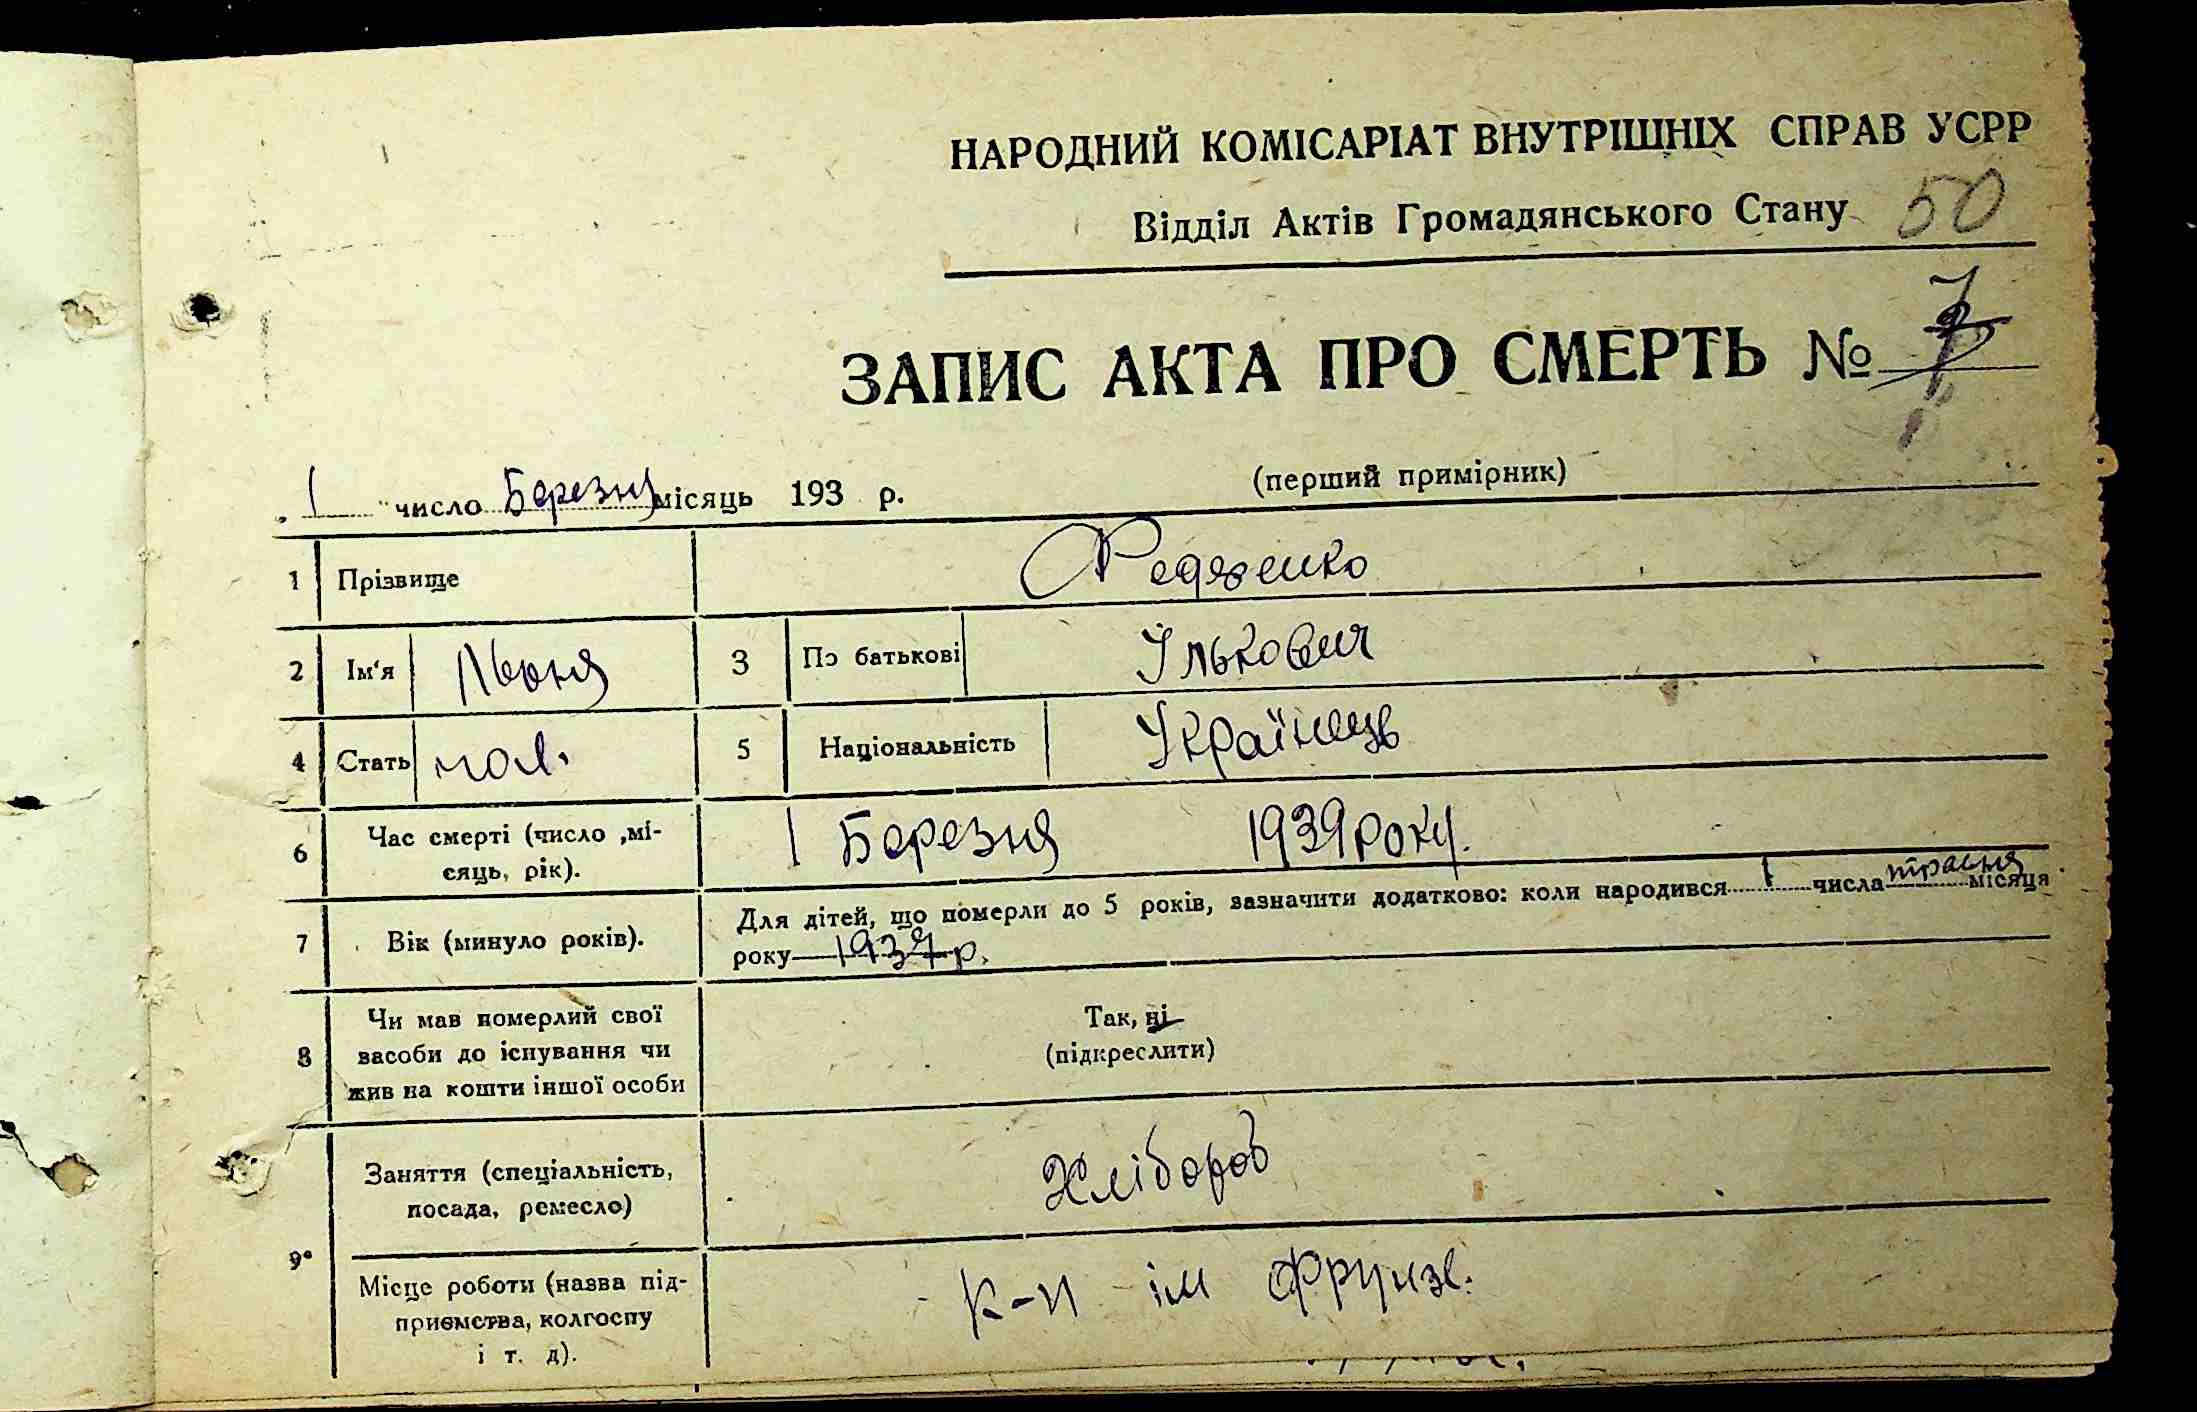 НАРОДНИЙ КОМІСАРІАТ ВНУТРІШНІХ СПРАВ УСРР
Відділ Актів Громадянського Стану 50
ЗАПИС АКТА ПРО СМЕРТЬ № 7
1 число Березня місяць 193 р. (перший примірник)
1 Прізвище Феденко
2 Ім'я Льоня 3 По батькові Ількович
4 Стать чол. 5 Національність Українець
6 Час смерті (число ,мі-
сяць, рік). 1 Березня 1939 року.
7 Вік (минуло років). Для дітей, що померли до 5 років, зазначити додатково: коли народився 1 числа трасня місяця
року 1937 р.
8 Чи мав померлий свої
засоби до існування чи
жив на кошти іншої особи
Так, ні
(підкреслити)
9 Заняття (спеціальність,
посада, ремесло) Хлібороб
Місце роботи (назва під-
приємства, колгоспу
і т. д). к-п ім Фрунзе.